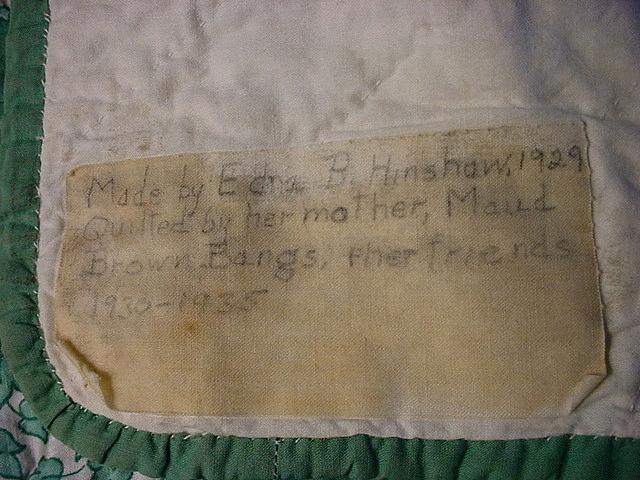 Made by Edna B. Hinshaw, 1929
Quilted by her mother, Maud
Brown Bangs, + her friends
1930-1935